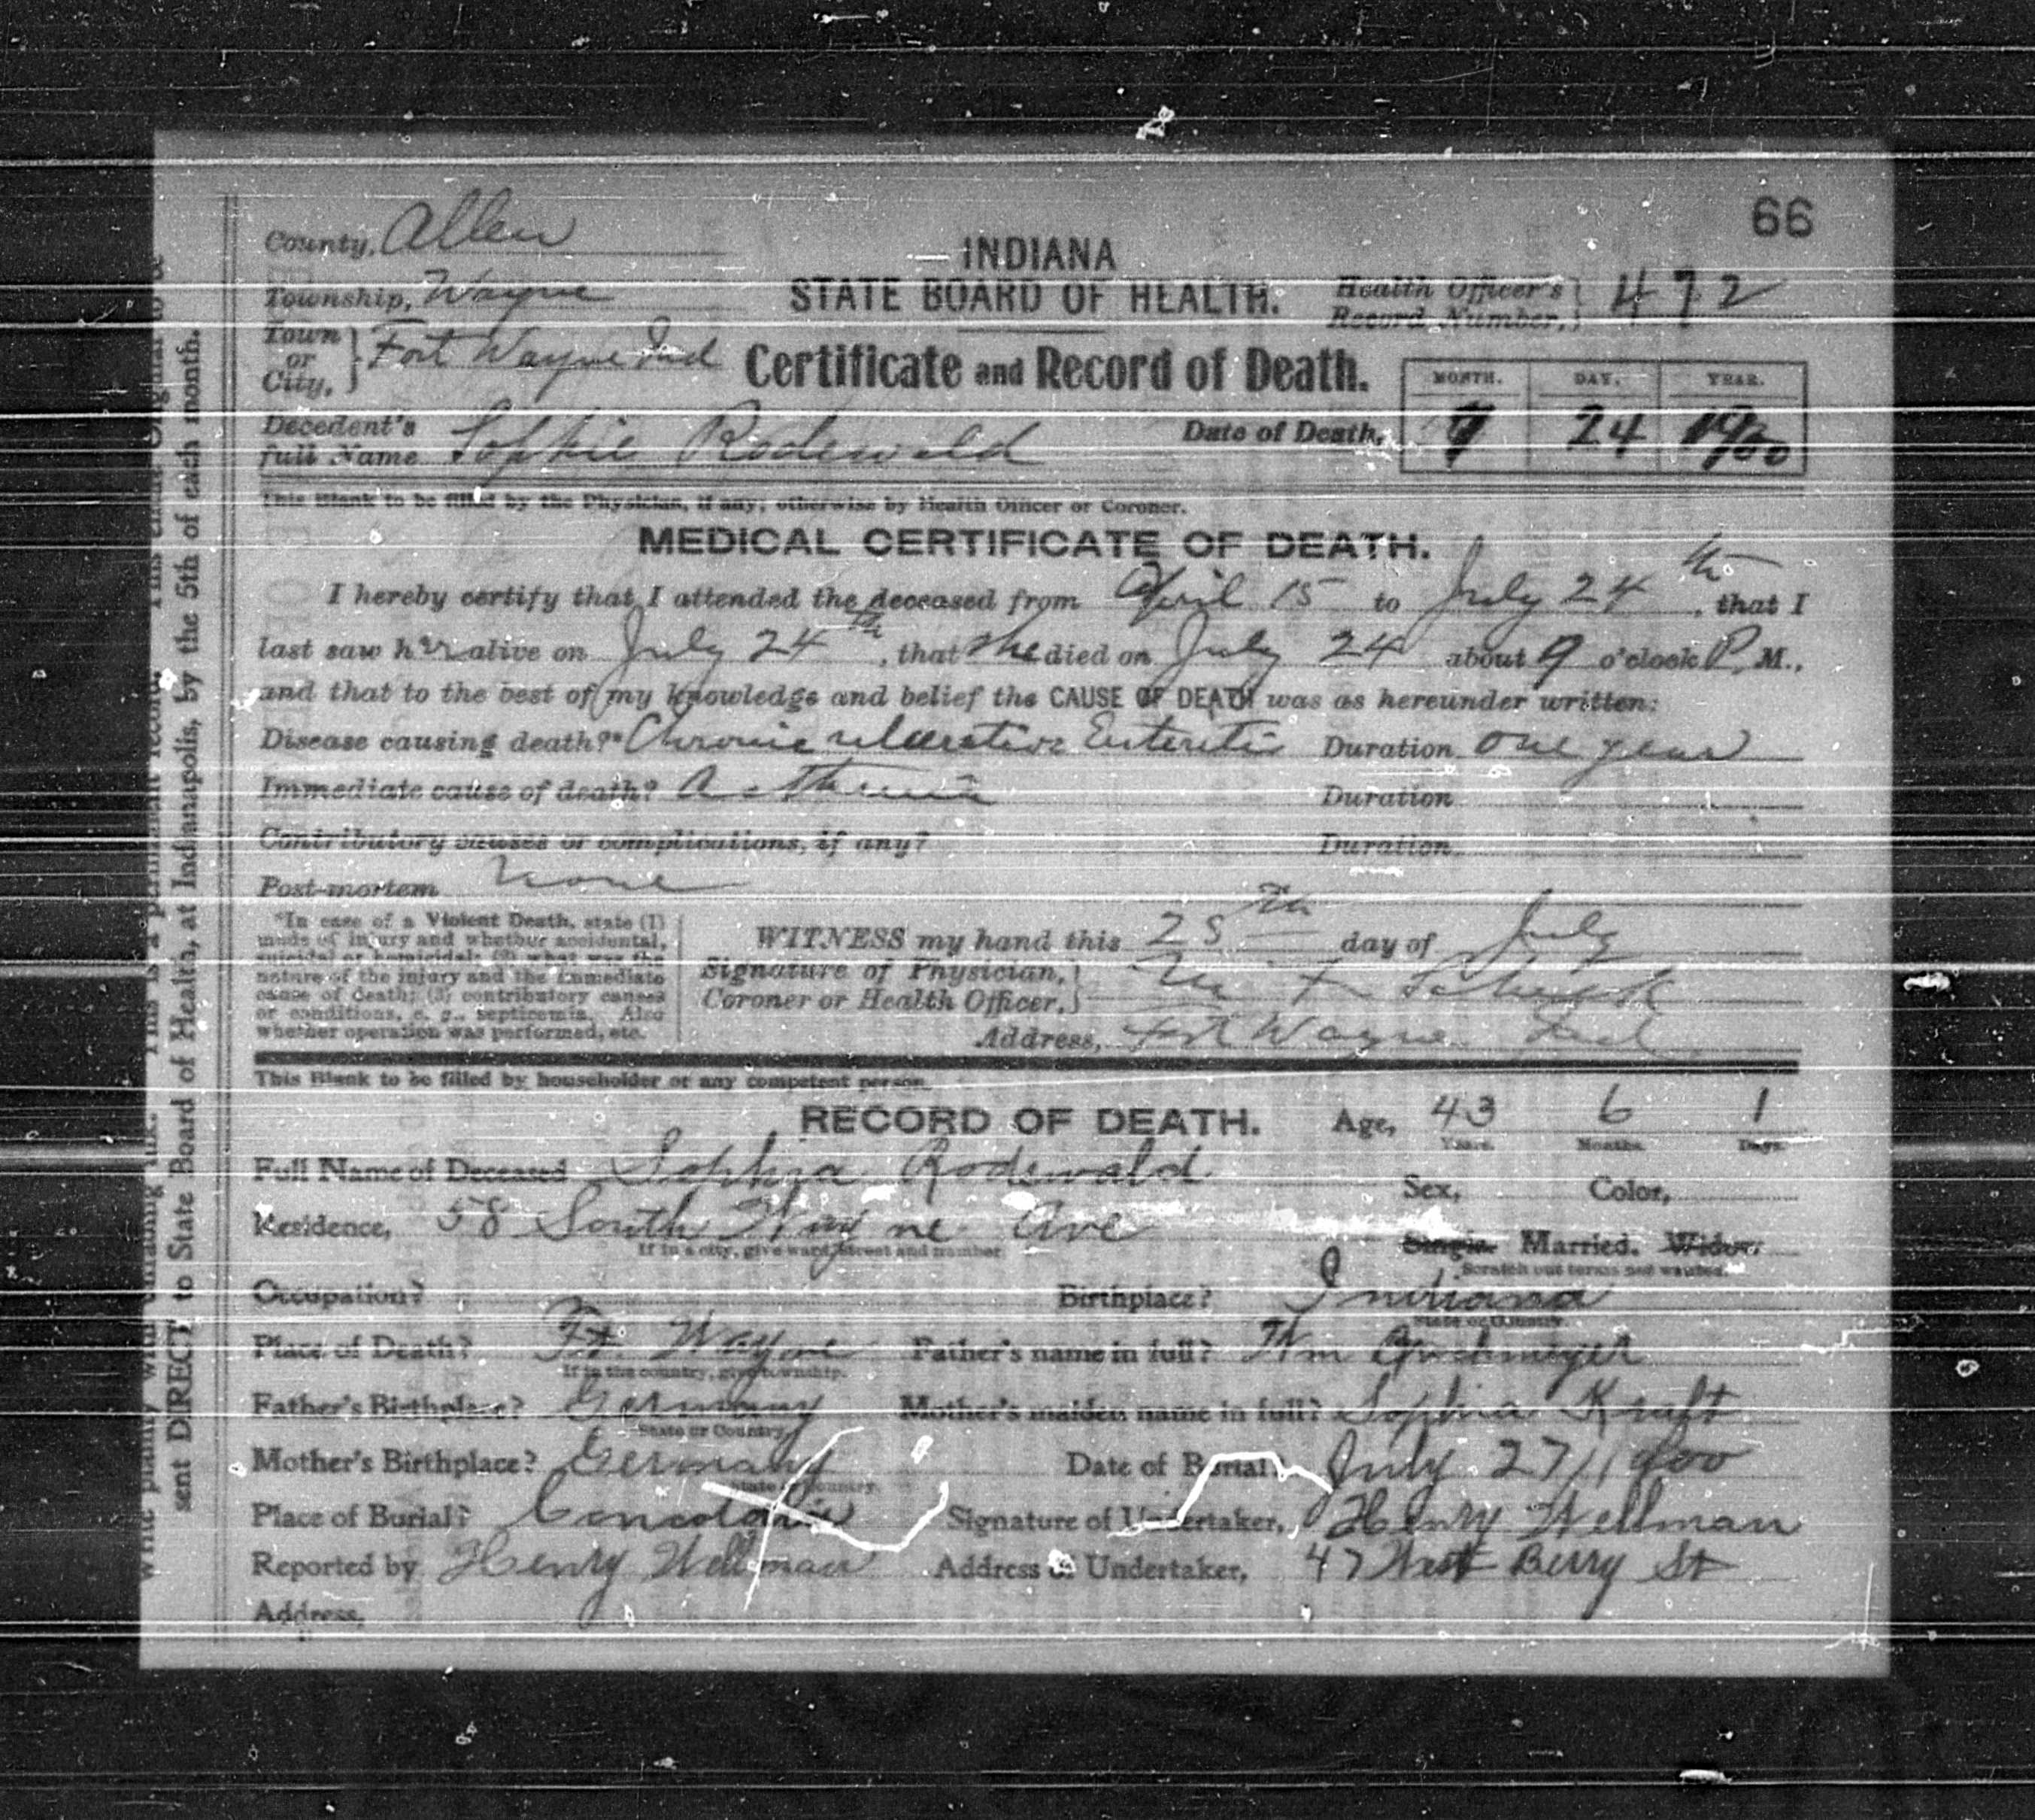 66
County, Allen
INDIANA
Township, Wayne
STATE BOARD OF HEALTH.
Health Officer's Record Number, 472
Town or City, Fort Wayne Ind
Certificate and Record of Death.
MONTH. DAY. YEAR.
Decedent's full Name Sophie Rodewald
Date of Death, 7 24 1900
This Blank to be filled by the Physician, if any; otherwise by Health Officer or Coroner.
MEDICAL CERTIFICATE OF DEATH.
I hereby certify that I attended the deceased from April 15 to July 24th, that I
last saw her alive on July 24th, that she died on July 24 about 9 o'clock P. M.,
and that to the best of my knowledge and belief the CAUSE OF DEATH was as hereunder written:
Disease causing death?* Chronic ulcerative Enteritis Duration one year
Immediate cause of death? Asthenia Duration
Contributory causes or complications, if any? Duration
Post-mortem None
*In case of a Violent Death, state (1)
mode of injury and whether accidental,
suicidal or homicidal; (2) what was the
nature of the injury and the immediate
cause of death; (3) contributory causes
or conditions, e. g., septicemia. Also
whether operation was performed, etc.
WITNESS my hand this 25th day of July
Signature of Physician, Coroner or Health Officer,
Address, Fort Wayne Ind
This Blank to be filled by householder or any competent person.
RECORD OF DEATH.
Age, 43 6 1
Years. Months. Days.
Full Name of Deceased Sophia Rodewald
Sex, Color,
Residence, 58 South Wayne Ave
If in a city, give ward, street and number
Single. Married. Widow.
Scratch out terms not wanted.
Occupation? Birthplace? Indiana
State or Country.
Place of Death? Ft Wayne Father's name in full? Wm
If in the country, give township.
Father's Birthplace? Germany Mother's maiden name in full? Sophia Kraft
State or Country
Mother's Birthplace? Germany Date of Burial, July 27/1900
State or Country.
Place of Burial? Concordia Signature of Undertaker, Henry Wellman
Reported by Henry Wellman Address of Undertaker, 47 West Berry St
Address,
sent DIRECT to State Board of Health, at Indianapolis, by the 5th of each month.